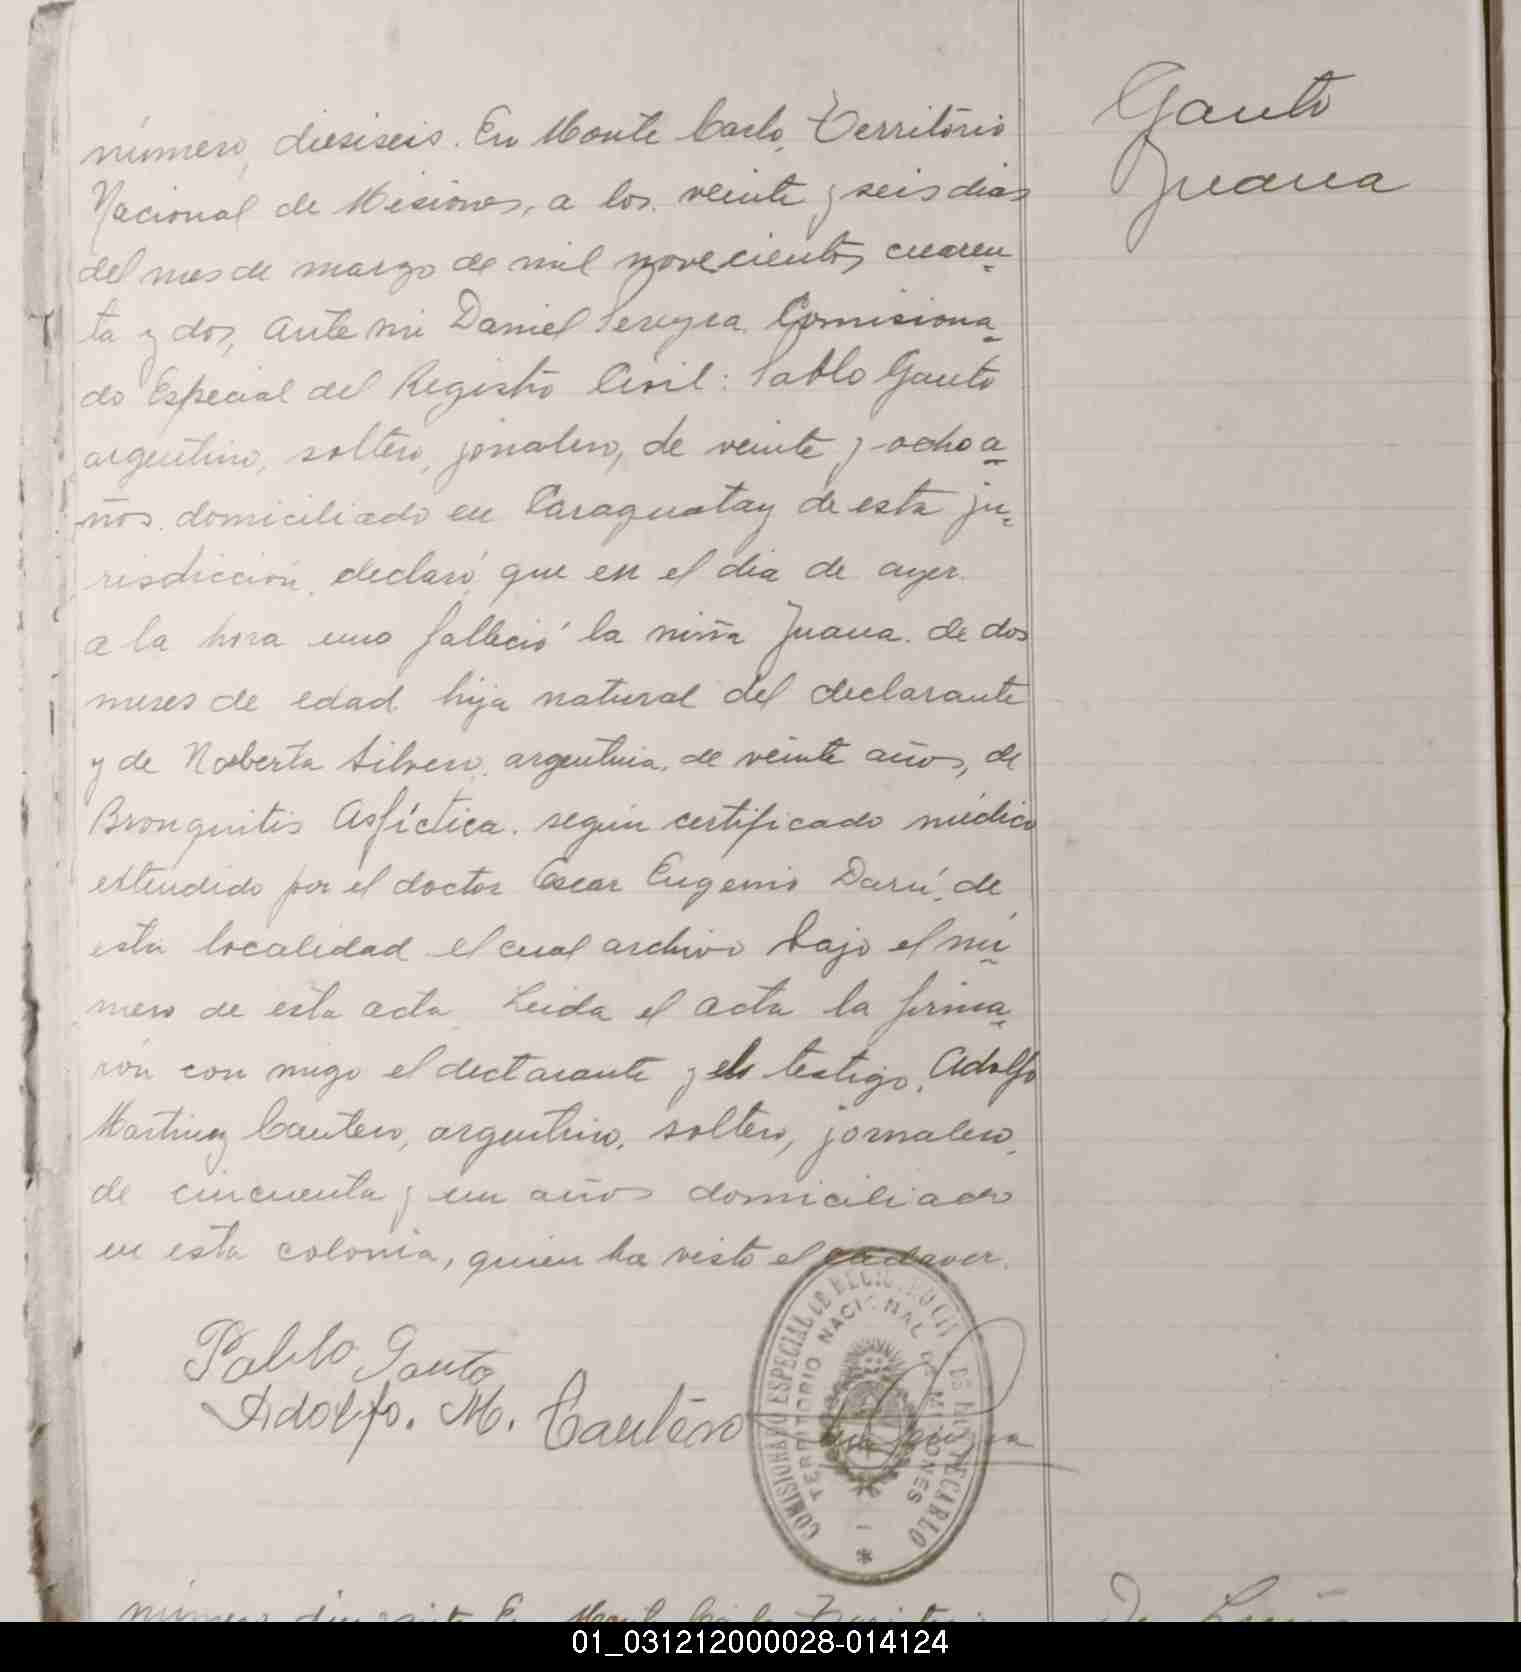 Gauto
Juana
número, diesiseis. En Monte Carlo, Territorio
Nacional de Misiones, a los veinte y seis dias
del mes de marzo de mil novecientos cuaren-
ta y dos, ante mi Daniel Pereyra Comisiona-
do Especial del Registro Civil: Pablo Gauto
argentino, soltero, jornalero, de veinte y ocho a-
ños domiciliado en Caraguatay de esta ju-
risdicción, declaró que en el dia de ayer
a la hora una falleció la niña Juana de dos
meses de edad hija natural del declarante
y de Norberta Silvero, argentina, de veinte años, de
Bronquitis Asfíctica. según certificado médico
estendido por el doctor Oscar Eugenio Darú, de
esta localidad el cual archivo bajo el nú-
mero de esta acta. Leida el acta la firma-
rón con migo el declarante y el testigo, Adolfo
Martinez Cantero, argentino, soltero, jornalero,
de cincuenta y un años domiciliado
en esta colonia, quien ha visto el cadaver.
Pablo Gauto
Adolfo. M. Cantero
COMISIONADO ESPECIAL DE REGISTRO CIVIL DE MONTECARLO
TERRITORIO NACIONAL DE MISIONES
número
01_031212000028-014124